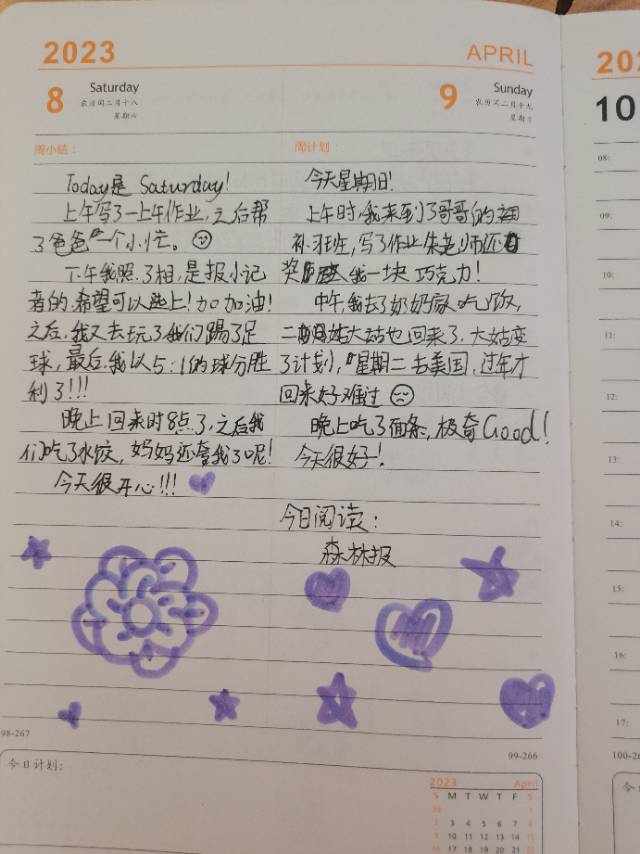 2023
8
Saturday
农历闰二月十八
星期六
周小结：
Today是 Saturday!
上午写了一上午作业，之后帮
了爸爸一个小忙。
下午我照了相，是报小记
者的，希望可以选上！加加油！
之后，我又去玩了我们踢了足
球，最后，我以5:1的球分胜
利了!!!
晚上回来时8点了，之后我
们吃了水饺，妈妈还夸我了呢！
今天很开心!!!
98-267
今日计划：
APRIL
9
Sunday
农历闰二月十九
星期日
周计划：
今天星期日！
上午时，我来到了哥哥的
补习班，写了作业朱老师还
奖我一块巧克力！
中午，我去了奶奶家吃饭，
二姑大姑也回来了，大姑变
了计划，星期二去美国，过年才
回来好难过
晚上吃了面条，极奇Good!
今天很好！
今日阅读：
森林报
99-266
2023 April
S M T W T F S
2 3 4 5 6 7 8
9 10 11 12 13 14 15
16 17 18 19 20 21 22
202
10
08:
09:
10:
11:
12:
13:
14:
15:
16:
17:
100-26
今